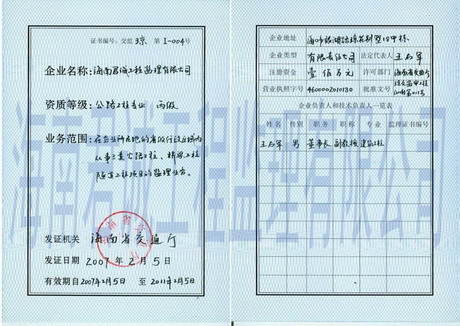 证书编号：交监 琼 第 I-004号
企业名称：海南君诚工程监理有限公司
资质等级：公路工程专业 丙级
业务范围：在企业所在地的省级行政区域内
从事三类公路工程、桥梁工程
隧道工程项目的监理业务。
发证机关 海南省交通厅
发证日期 2007年2月5日
有效期自2007年2月5日 至 2011年2月5日
企业地址
企业类型 有限责任公司 法定代表人 王石军
注册资金 壹佰万元 许可部门 海南省交通厅
营业执照字号 4600002010130 批准文号
企业负责人和技术负责人一览表
姓名 性别 职务 职称 专业 监理证书编号
王石军 男 董事长 副教授 建筑工程
海南君诚工程监理有限公司